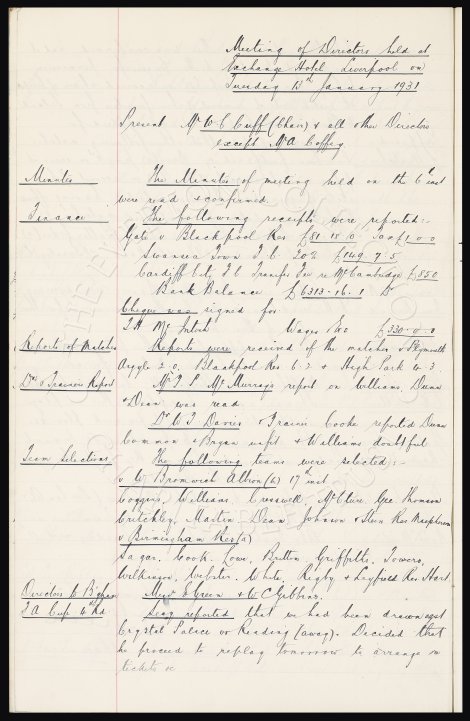 Meeting of Directors held at
Exchange Hotel, Liverpool on
Tuesday 13th January 1931
Present Mr W C Cuff (Chair) & all other Directors
except Mr A Coffey
Minutes The Minutes of meeting held on the 6th inst
were read & confirmed.
Finance The following receipts were reported:-
Gate v Blackpool Res £81.18.0 Tax £1.0.0
Swansea Town F C 20% £149.7.5
Cardiff City F C Transfer Fee re McCambridge £850
Bank Balance £6313.16.1 Dr
Cheque was signed for
T H McIntosh Wages &c £330.0.0
Reports of Matches Reports were received of the matches v Plymouth
Argyle 2.0, Blackpool Res & High Park 4.3
Drs & Trainers Report Mr T P McMurray's report on Williams Dunn
& Dean was read
Dr W J Davies & Trainer Cooke reported Dunn
Common & Bryan unfit & Williams doubtful
Team Selections The following teams were selected:-
v W Bromwich Albion (h) 17th inst
Coggins, Williams, Cresswell, McClure, Gee Thomson
Critchley, Martin, Dean, Johnson & Stein Res
v Birmingham Res (a)
Sagar, Cook, Lowe, Britton, Griffiths, Towers,
Wilkinson, Webster, White, Rigby & Leyfield Res
Directors to B'gham Green & W C Gibbins.
F A Cup 4th Rd Secy reported that we had been drawn agst
Crystal Palace or Reading (away). Decided that
he proceed to replay tomorrow to arrange re
tickets &c